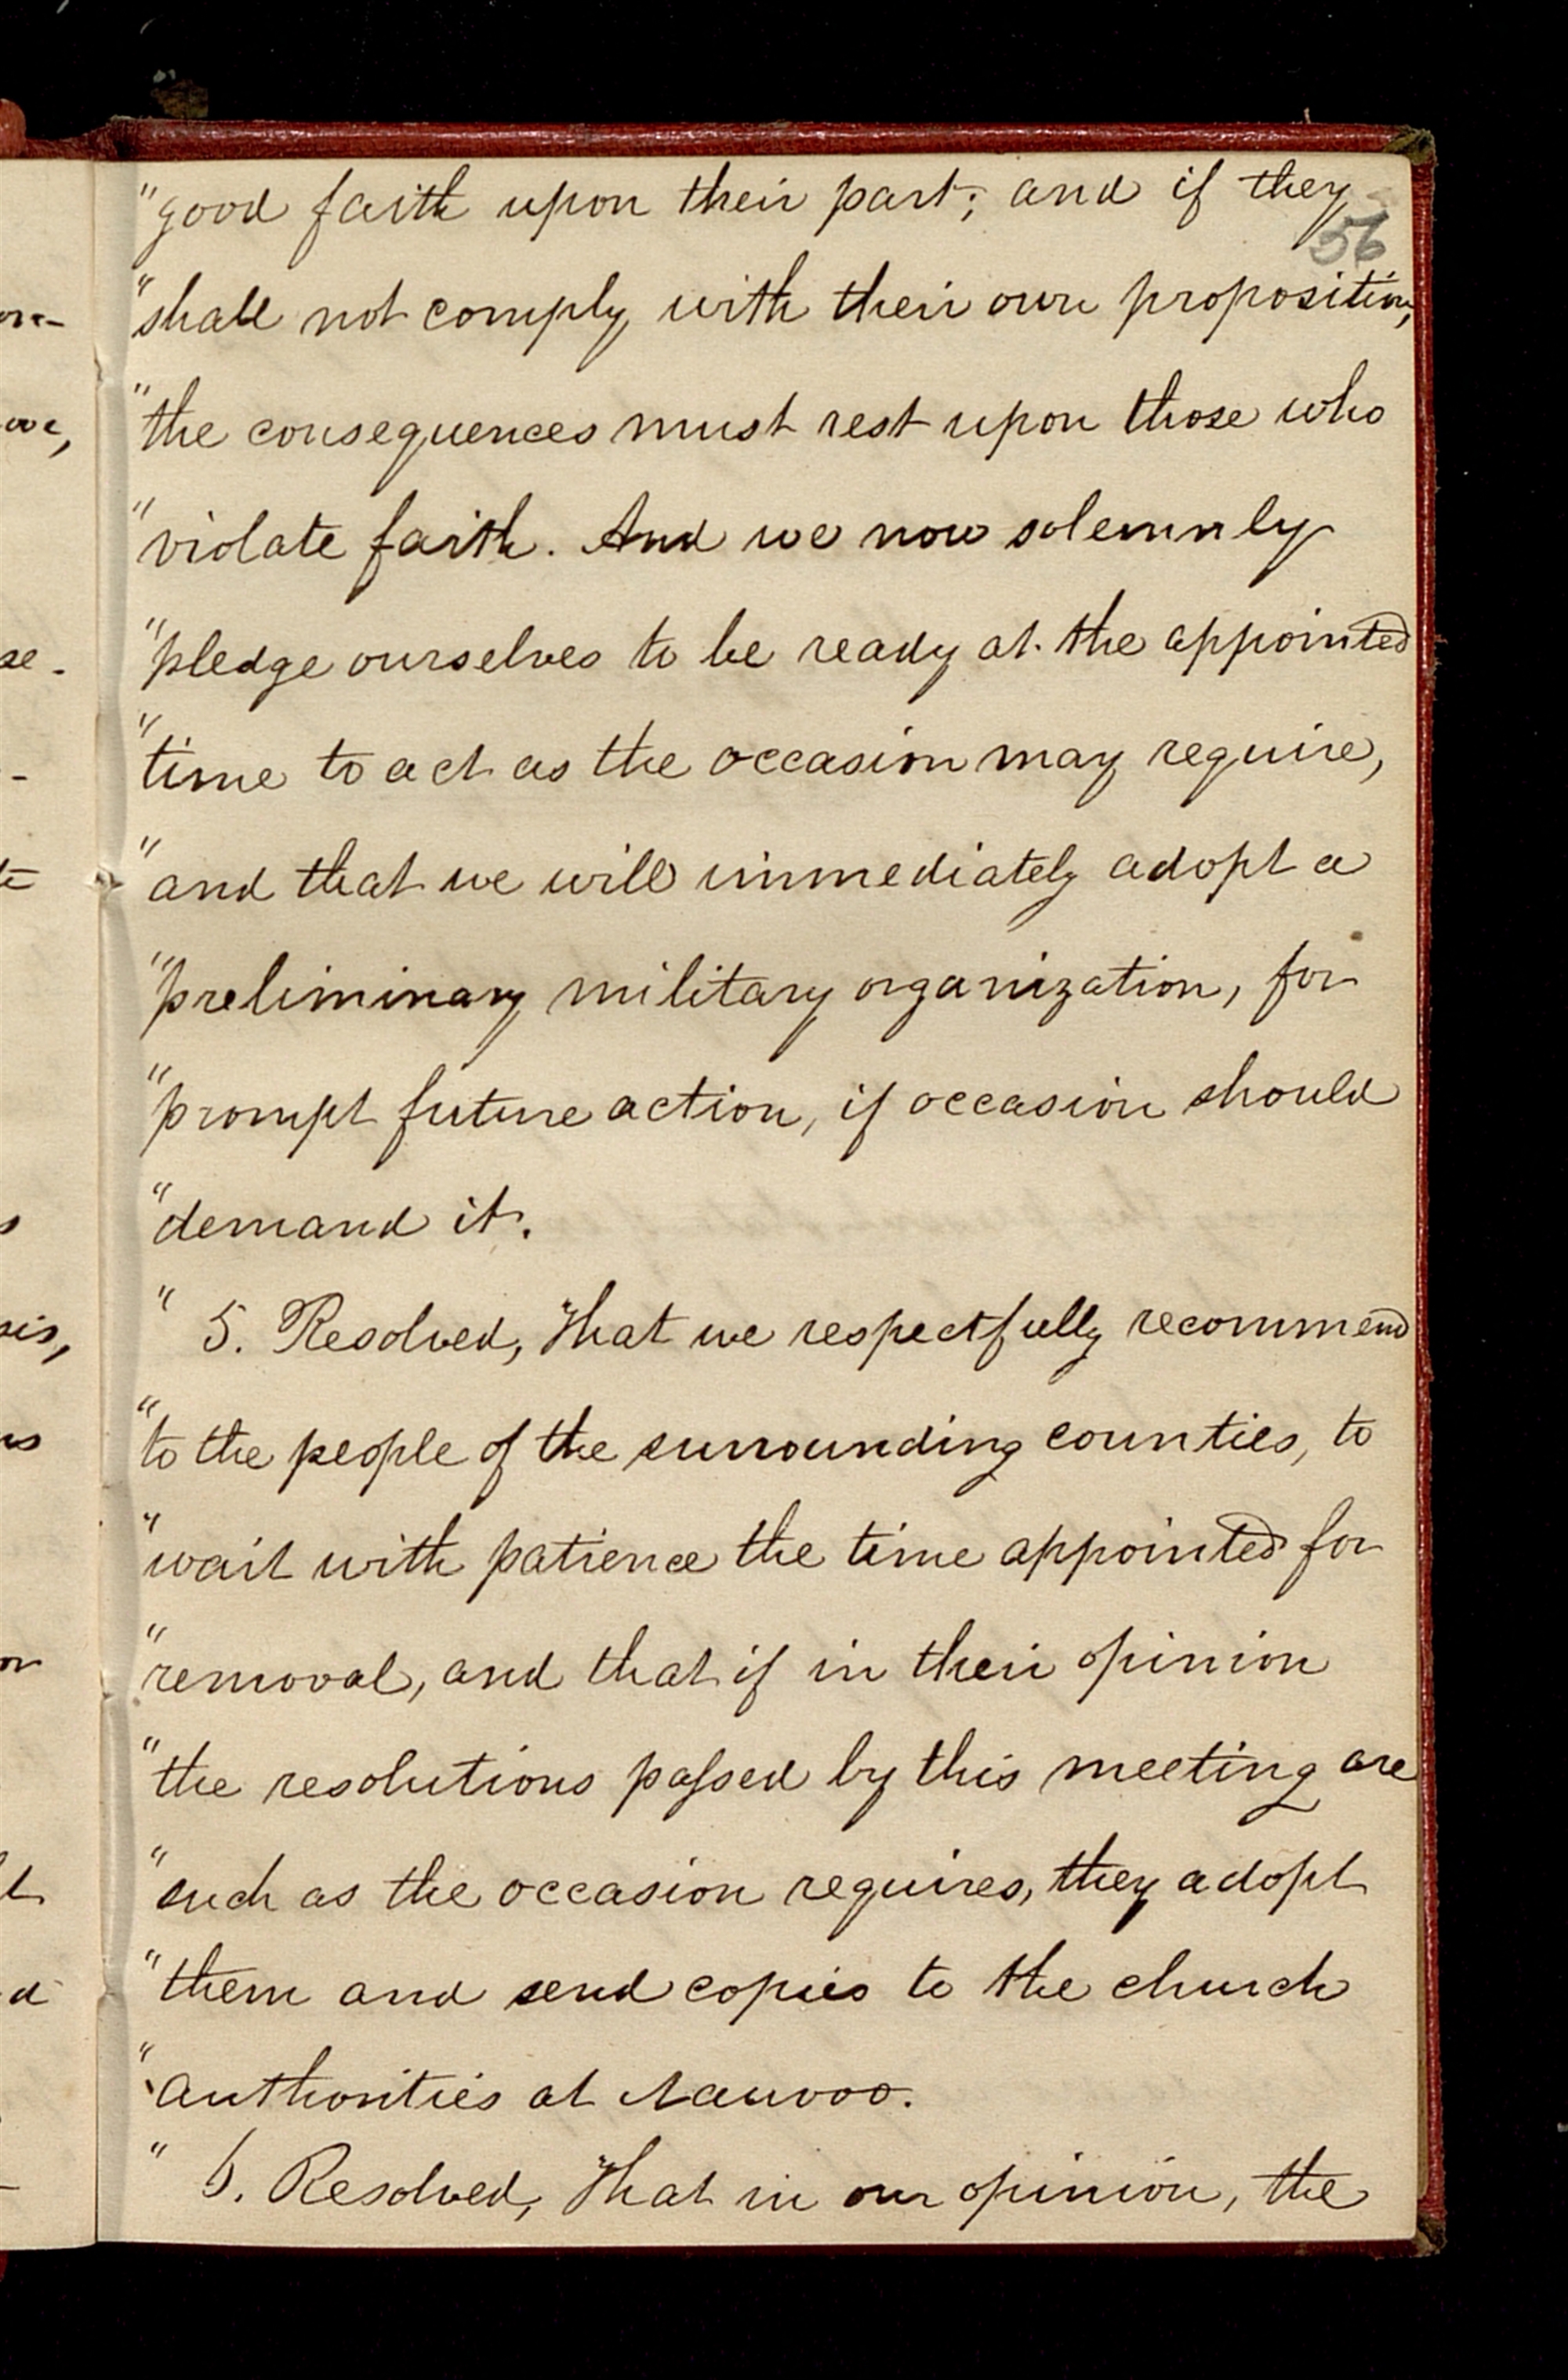 "good faith upon their part; and if they
56
"shall not comply with their own proposition,
"the consequences must rest upon those who
"violate faith. And we now solemnly
"pledge ourselves to be ready at the appointed
"time to act as the occasion may require,
"and that we will immediately adopt a
"preliminary military organization, for
"prompt future action, if occasion should
"demand it.
" 5. Resolved, That we respectfully recommend
"to the people of the surrounding counties, to
"wait with patience the time appointed for
"removal, and that if in their opinion
"the resolutions passed by this meeting are
"such as the occasion requires, they adopt
"them and send copies to the church
"authorities at Nauvoo.
" 6. Resolved, That in our opinion, the